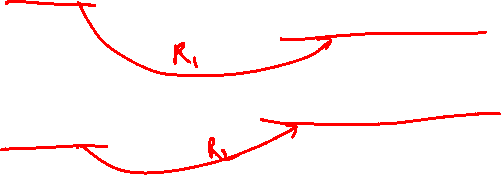 R₁
R₂